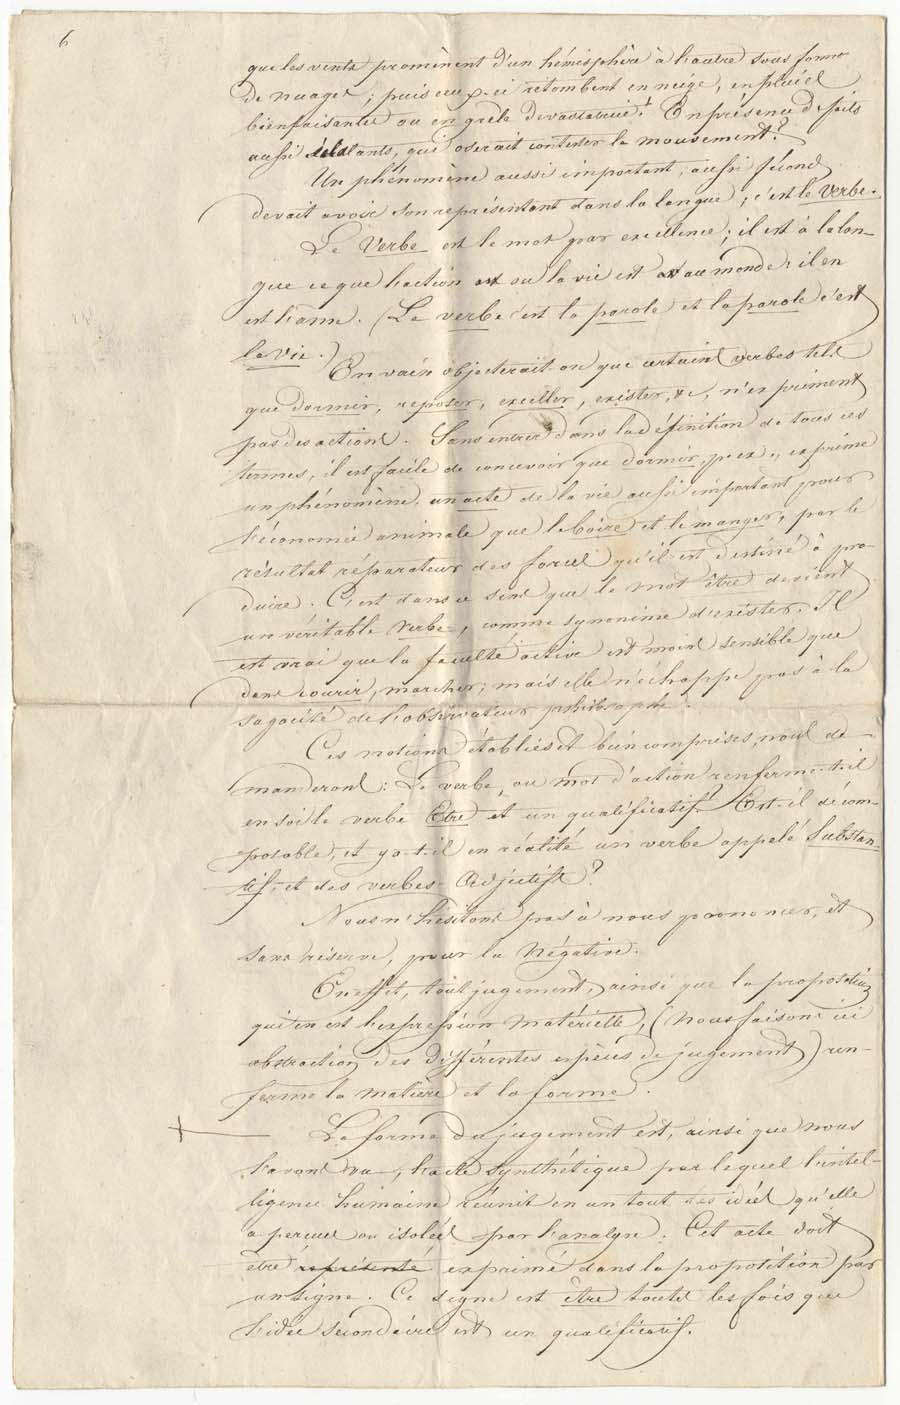 6
que les vents promènent d'un hémisphère à l'autre sous forme
de nuages ; puis ceux-ci retombent en neige, en pluies
bienfaisantes ou en grêle dévastatrice ! En présence de faits
aussi éclatants, qui oserait contester le mouvement ?
Un phénomène aussi important, aussi fécond
devait avoir son représentant dans la langue ; c'est le verbe.
Le Verbe est le mot par excellence ; il est à la lan-
gue ce que l'action ou la vie est au monde : il en
est l'âme. (Le verbe c'est la parole et la parole c'est
la vie.)
En vain objecterait-on que certains verbes tels
que dormir, reposer, exceller, exister, &c, n'expriment
pas des actions. Sans entrer dans la définition de tous ces
termes, il est facile de concevoir que dormir, p. ex., exprime
un phénomène, un acte de la vie aussi important pour
l'économie animale que le boire et le manger, par le
résultat réparateur des forces qu'il est destiné à pro-
duire. C'est dans ce sens que le mot être devient
un véritable verbe, comme synonime d'exister. Il
est vrai que la faculté active est moins sensible que
dans courir, marcher ; mais elle n'échappe pas à la
sagacité de l'observateur philosophe.
Ces notions établies et bien comprises, nous de-
manderons : Le verbe, ou mot d'action renferme-t-il
en soi le verbe Etre et un qualificatif ? Est-il décom-
posable, et y a-t-il en réalité un verbe appelé Substan-
tif, et des verbes Adjectifs ?
Nous n'hésitons pas à nous prononcer, et
sans réserve, pour la Négative.
En effet, tout jugement, ainsi que la proposition
qui en est l'expression matérielle, (nous faisons ici
abstraction des différentes espèces de jugement) ren-
ferme la matière et la forme.
La forme du jugement est, ainsi que nous
l'avons vu, l'acte synthétique par lequel l'intel-
ligence humaine réunit en un tout des idées qu'elle
a perçues ou isolées par l'analyse. Cet acte doit
être représenté exprimé dans la proposition par
un signe. Ce signe est être toutes les fois que
l'idée secondaire est un qualificatif.